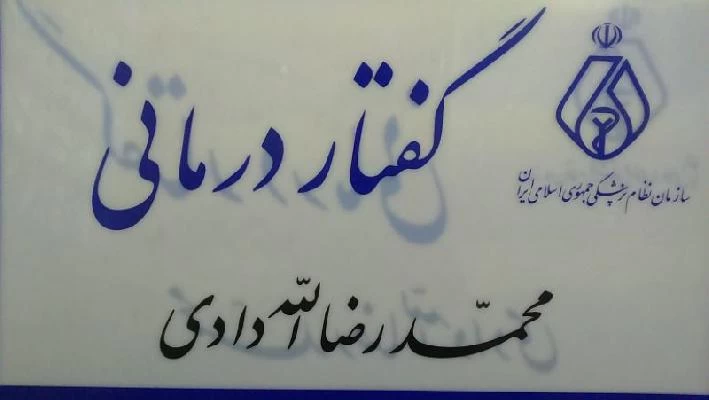 گفتار درمانی
سازمان نظام پزشکی جمهوری اسلامی ایران
محمّد رضا الله دادی